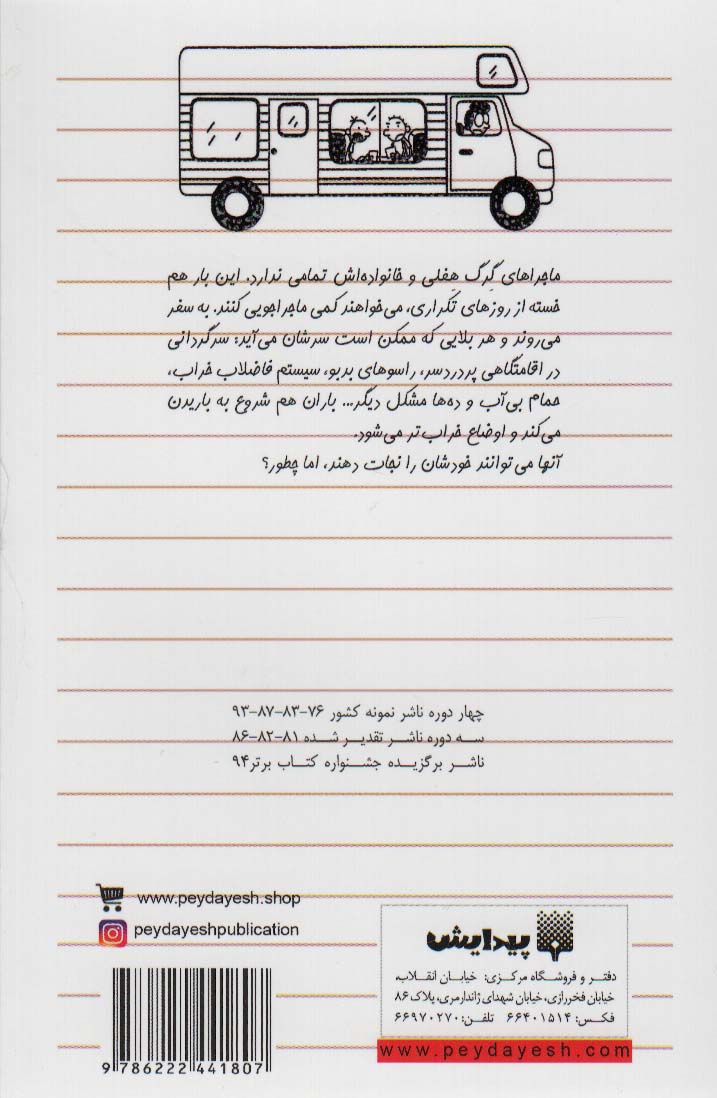 ماجراهای گِرِگ هِفلی و خانواده‌اش تمامی ندارد. این بار هم
خسته از روزهای تکراری، می‌خواهند کمی ماجراجویی کنند. به سفر
می‌روند و هر بلایی که ممکن است سرشان می‌آید: سرگردانی
در اقامتگاهی پردردسر، راسوهای بدبو، سیستم فاضلاب خراب،
حمام بی‌آب و ده‌ها مشکل دیگر... باران هم شروع به باریدن
می‌کند و اوضاع خراب‌تر می‌شود.
آنها می‌توانند خودشان را نجات دهند، اما چطور؟
چهار دوره ناشر نمونه کشور ۷۶-۸۳-۸۷-۹۳
سه دوره ناشر تقدیر شده ۸۱-۸۲-۸۶
ناشر برگزیده جشنواره کتاب برتر۹۴
www.peydayesh.shop
peydayeshpublication
پیدایش
دفتر و فروشگاه مرکزی: خیابان انقلاب،
خیابان فخررازی، خیابان شهدای ژاندارمری، پلاک ۸۶
فکس: ۶۶۴۰۱۵۱۴ تلفن: ۶۶۹۷۰۲۷۰
www.peydayesh.com
9 786222 441807